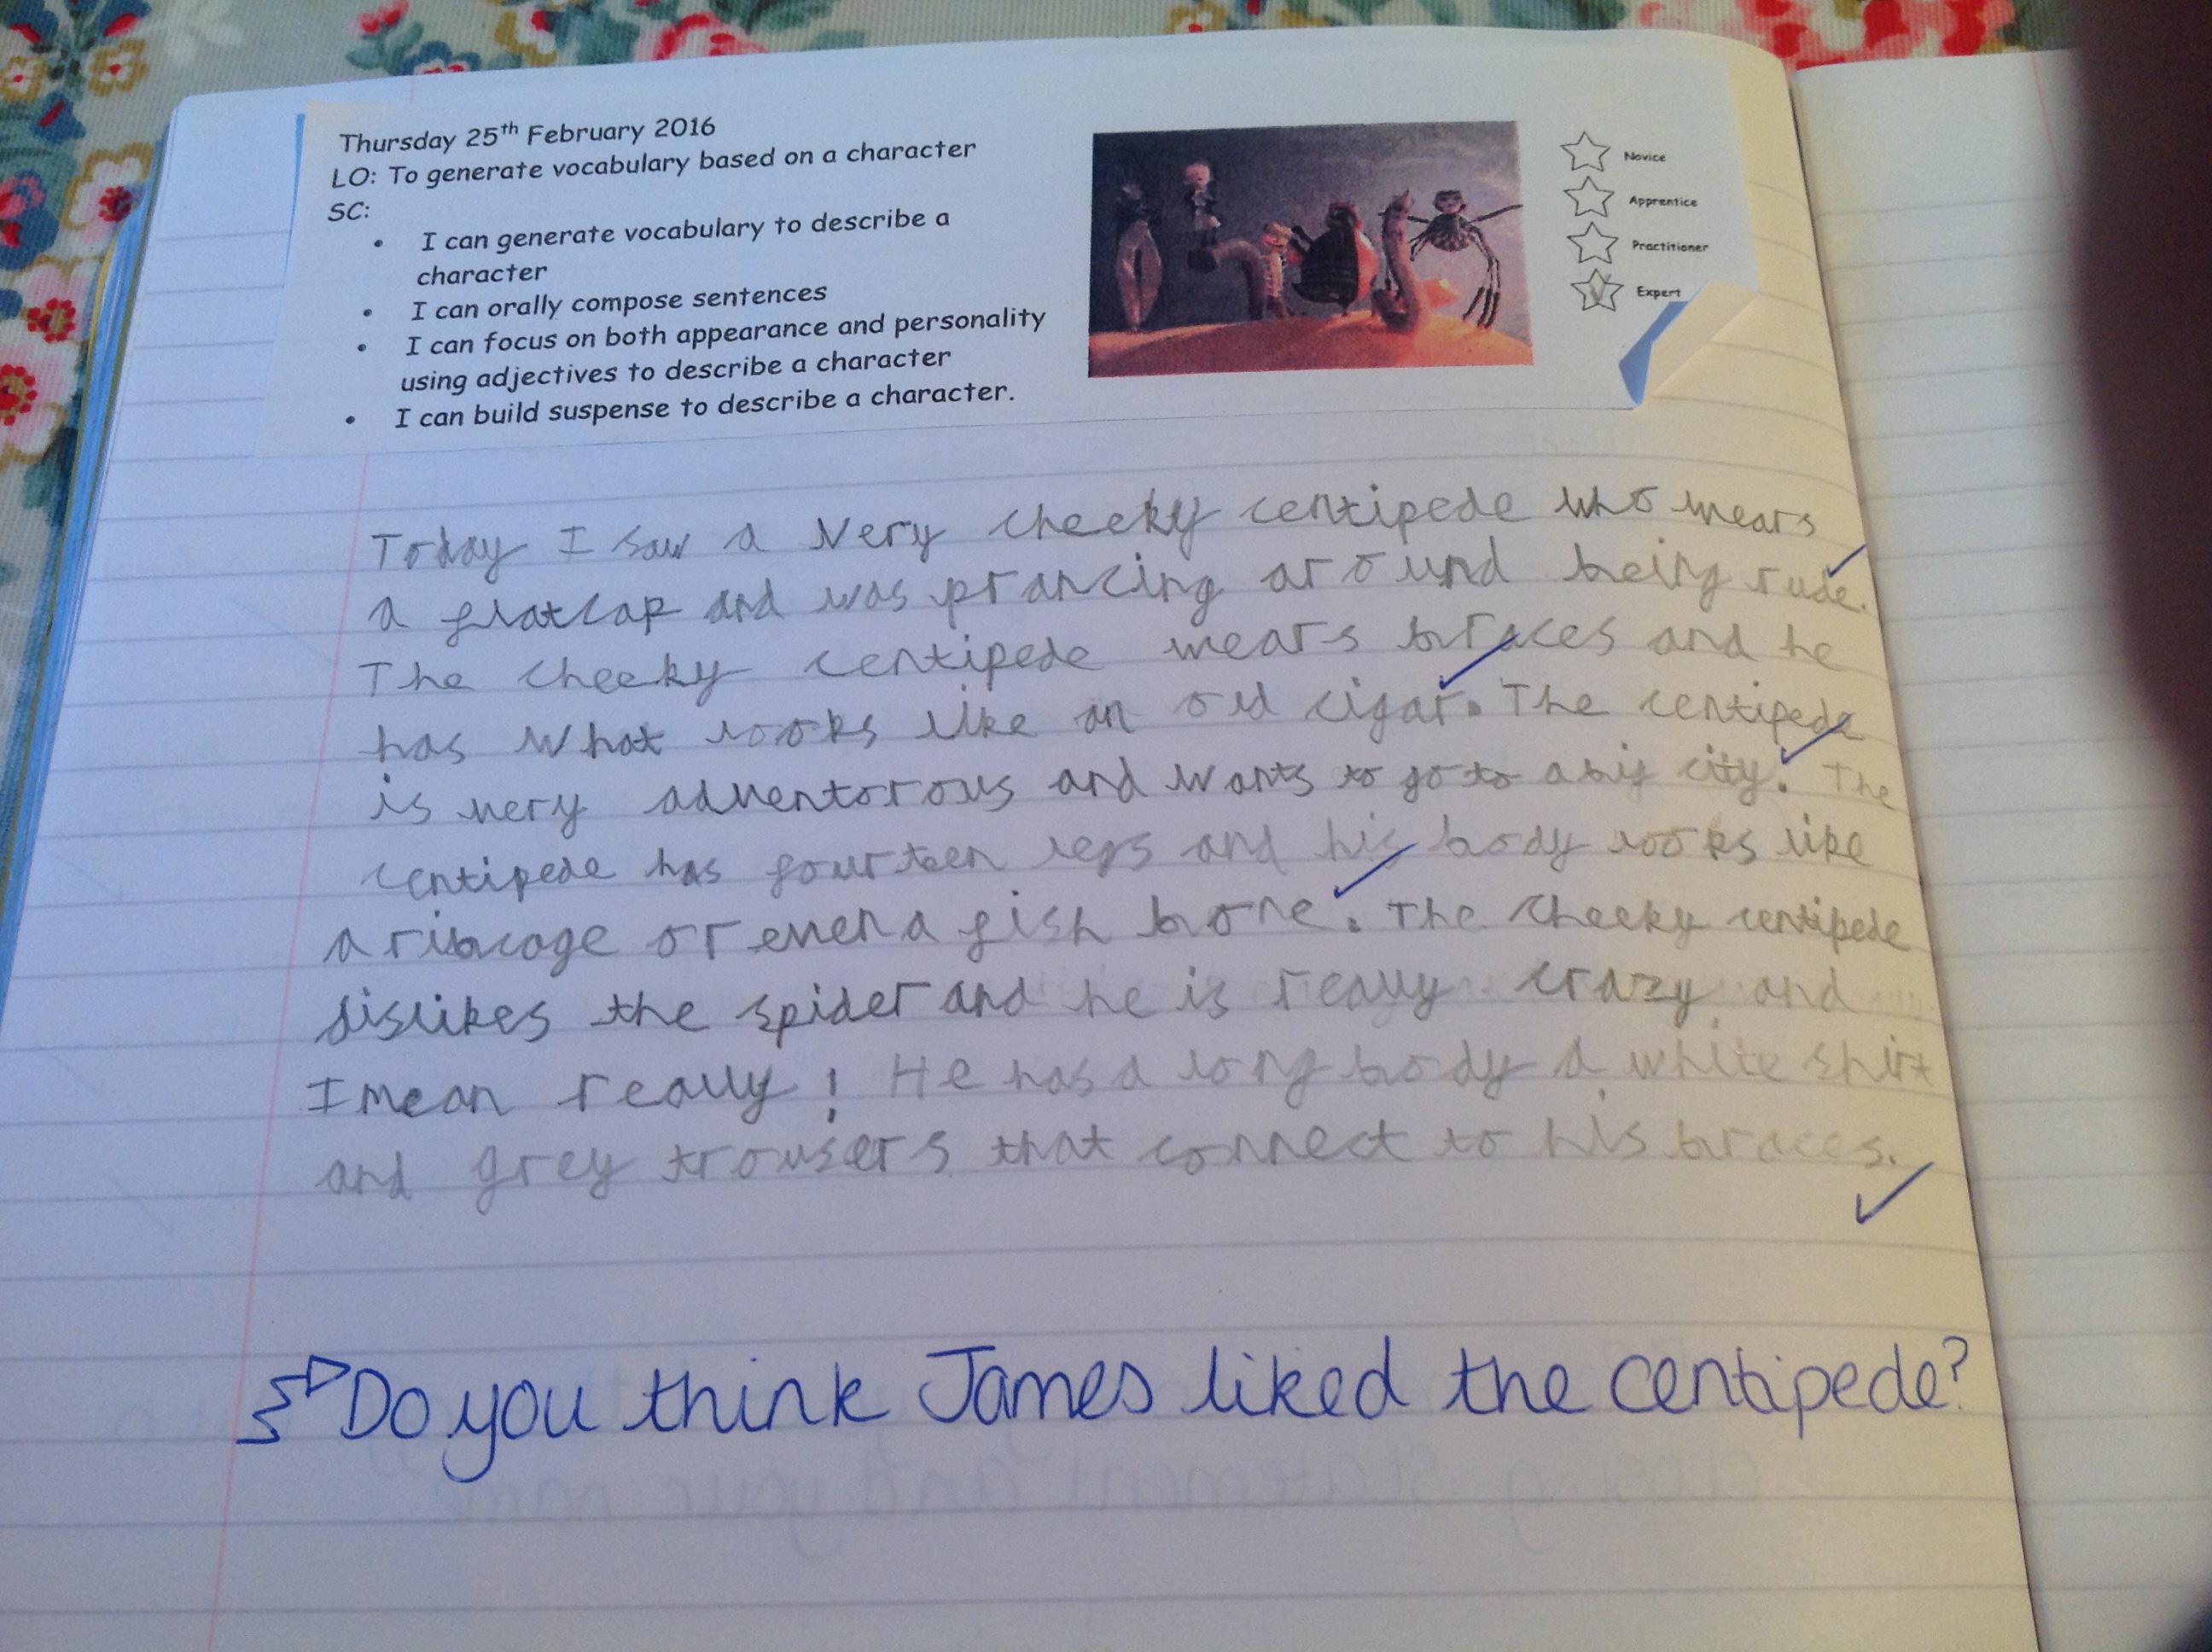 Thursday 25th February 2016
LO: To generate vocabulary based on a character
SC:
• I can generate vocabulary to describe a
character
• I can orally compose sentences
• I can focus on both appearance and personality
using adjectives to describe a character
• I can build suspense to describe a character.
Novice
Apprentice
Practitioner
Expert
Today I saw a very cheeky centipede who wears
a flatcap and was prancing around being rude.
The cheeky centipede wears braces and he
has what looks like an old cigar. The centipede
is very adventorous and wants to go to a big city. The
centipede has fourteen legs and his body looks like
a ribcage or even a fish bone. The cheeky centipede
dislikes the spider and he is really crazy and
I mean really! He has a long body a white shirt
and grey trousers that connect to his braces.
Do you think James liked the centipede?